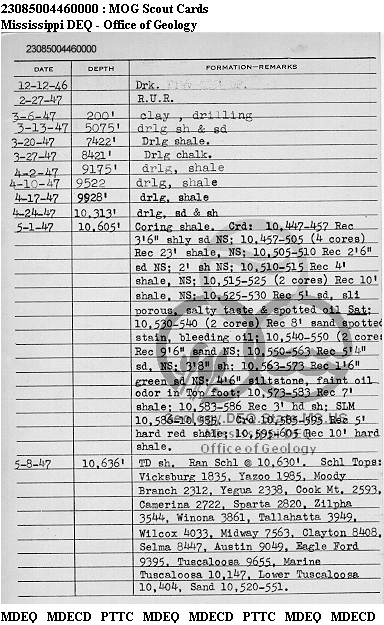 23085004460000 : MOG Scout Cards
Mississippi DEQ - Office of Geology
23085004460000
DATE DEPTH FORMATION—REMARKS
12-12-46 Drk.
2-27-47 R.U.R.
3-6-47 200' clay , drilling
3-13-47 5075' drlg sh & sd
3-20-47 7422' Drlg shale.
3-27-47 8421' Drlg chalk.
4-2-47 9175' drlg, shale
4-10-47 9522 drlg, shale
4-17-47 9928' drlg, shale
4-24-47 10,313' drlg, sd & sh
5-1-47 10,605' Coring shale. Crd: 10,447-457 Rec
3'6" shly sd NS; 10,457-505 (4 cores)
Rec 23' shale, NS; 10,505-510 Rec 2'6"
sd NS; 2' sh NS; 10,510-515 Rec 4'
shale, NS; 10,515-525 (2 cores) Rec 10'
shale, NS; 10,525-530 Rec 5' sd, sli
porous, salty taste & spotted oil Sat;
10,530-540 (2 cores) Rec 8' sand spotted
stain, bleeding oil; 10,540-550 (2 cores
Rec 9'6" sand NS; 10,550-563 Rec 5'4"
sd, NS; 3'8" sh; 10,563-573 Rec 1'6"
green sd NS; 4'6" siltstone, faint oil
odor in Top foot; 10,573-583 Rec 7'
shale; 10,583-586 Rec 3' hd sh; SLM
10,586-10,585. Crd 10,585-595 Rec 5'
hard red shale; 10,595-605 Rec 10' hard
shale.
Office of Geology
5-8-47 10,636' TD sh. Ran Schl @ 10,630'. Schl Tops:
Vicksburg 1835, Yazoo 1985, Moody
Branch 2312, Yegua 2338, Cook Mt. 2593,
Camerina 2722, Sparta 2820, Zilpha
3544, Winona 3861, Tallahatta 3949,
Wilcox 4033, Midway 7563, Clayton 8408,
Selma 8447, Austin 9049, Eagle Ford
9395, Tuscaloosa 9655, Marine
Tuscaloosa 10,147, Lower Tuscaloosa
10,404, Sand 10,520-551.
MDEQ MDECD PTTC MDEQ MDECD PTTC MDEQ MDECD